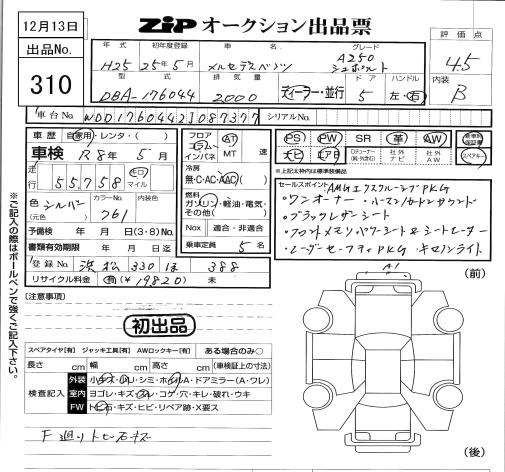 12月13日
ZiP オークション出品票
出品No.
310
評価点
4.5
内装
B
年式 初年度登録 車名 グレード
H25 25年5月 メルセデスベンツ A250 シュポルト
型式 排気量 ドア ハンドル
DBA-176044 2000 ディーラー・並行 5 左・右
車台No. WDD1760442J087377 シリアルNo.
車歴 自家用・レンタ・( )
車検 R8年 5月
走行 55,758 キロ マイル
色 シルバー (元色) カラーNo. 761 内装色
予備検 年 月 日(3・8)
書類有効期限 年 月 日迄
登録No. 浜松 330 ほ 388
リサイクル料金 有(¥19820) 未
フロア コラム インパネ AT MT 速
冷房 無・C・AC・AAC( )
燃料 ガソリン・軽油・電気・その他( )
Nox 適合・非適合
乗車定員 5名
PS PW SR 革 AW 新車時保証書
ナビ エアB 社外ナビ 社外AW スペアキー
※上記太枠内は標準装備品
セールスポイント AMGエクスクルーシブPKG
・ワンオーナー ・ハーマンカードンサウンド
・ブラックレザーシート
・フロントメモリパワーシート&シートヒーター
・レーダーセーフティPKG ・キセノンライト
※ご記入の際はボールペンで強くご記入下さい。
[注意事項]
初出品
スペアタイヤ[有] ジャッキ工具[有] AWロックキー[有] ある場合のみ〇
長さ cm 幅 cm 高さ cm (車検証上の寸法)
検査記入
外装 小キズ・凹・シミ・ホイルA・ドアミラー(A・ワレ)
室内 ヨゴレ・キズ・スレ・コゲ・穴・キレ・破れ・ウキ
FW トビ石・キズ・ヒビ・リペア跡・X要ス
F廻りトビ石キズ
(前)
A1
(後)